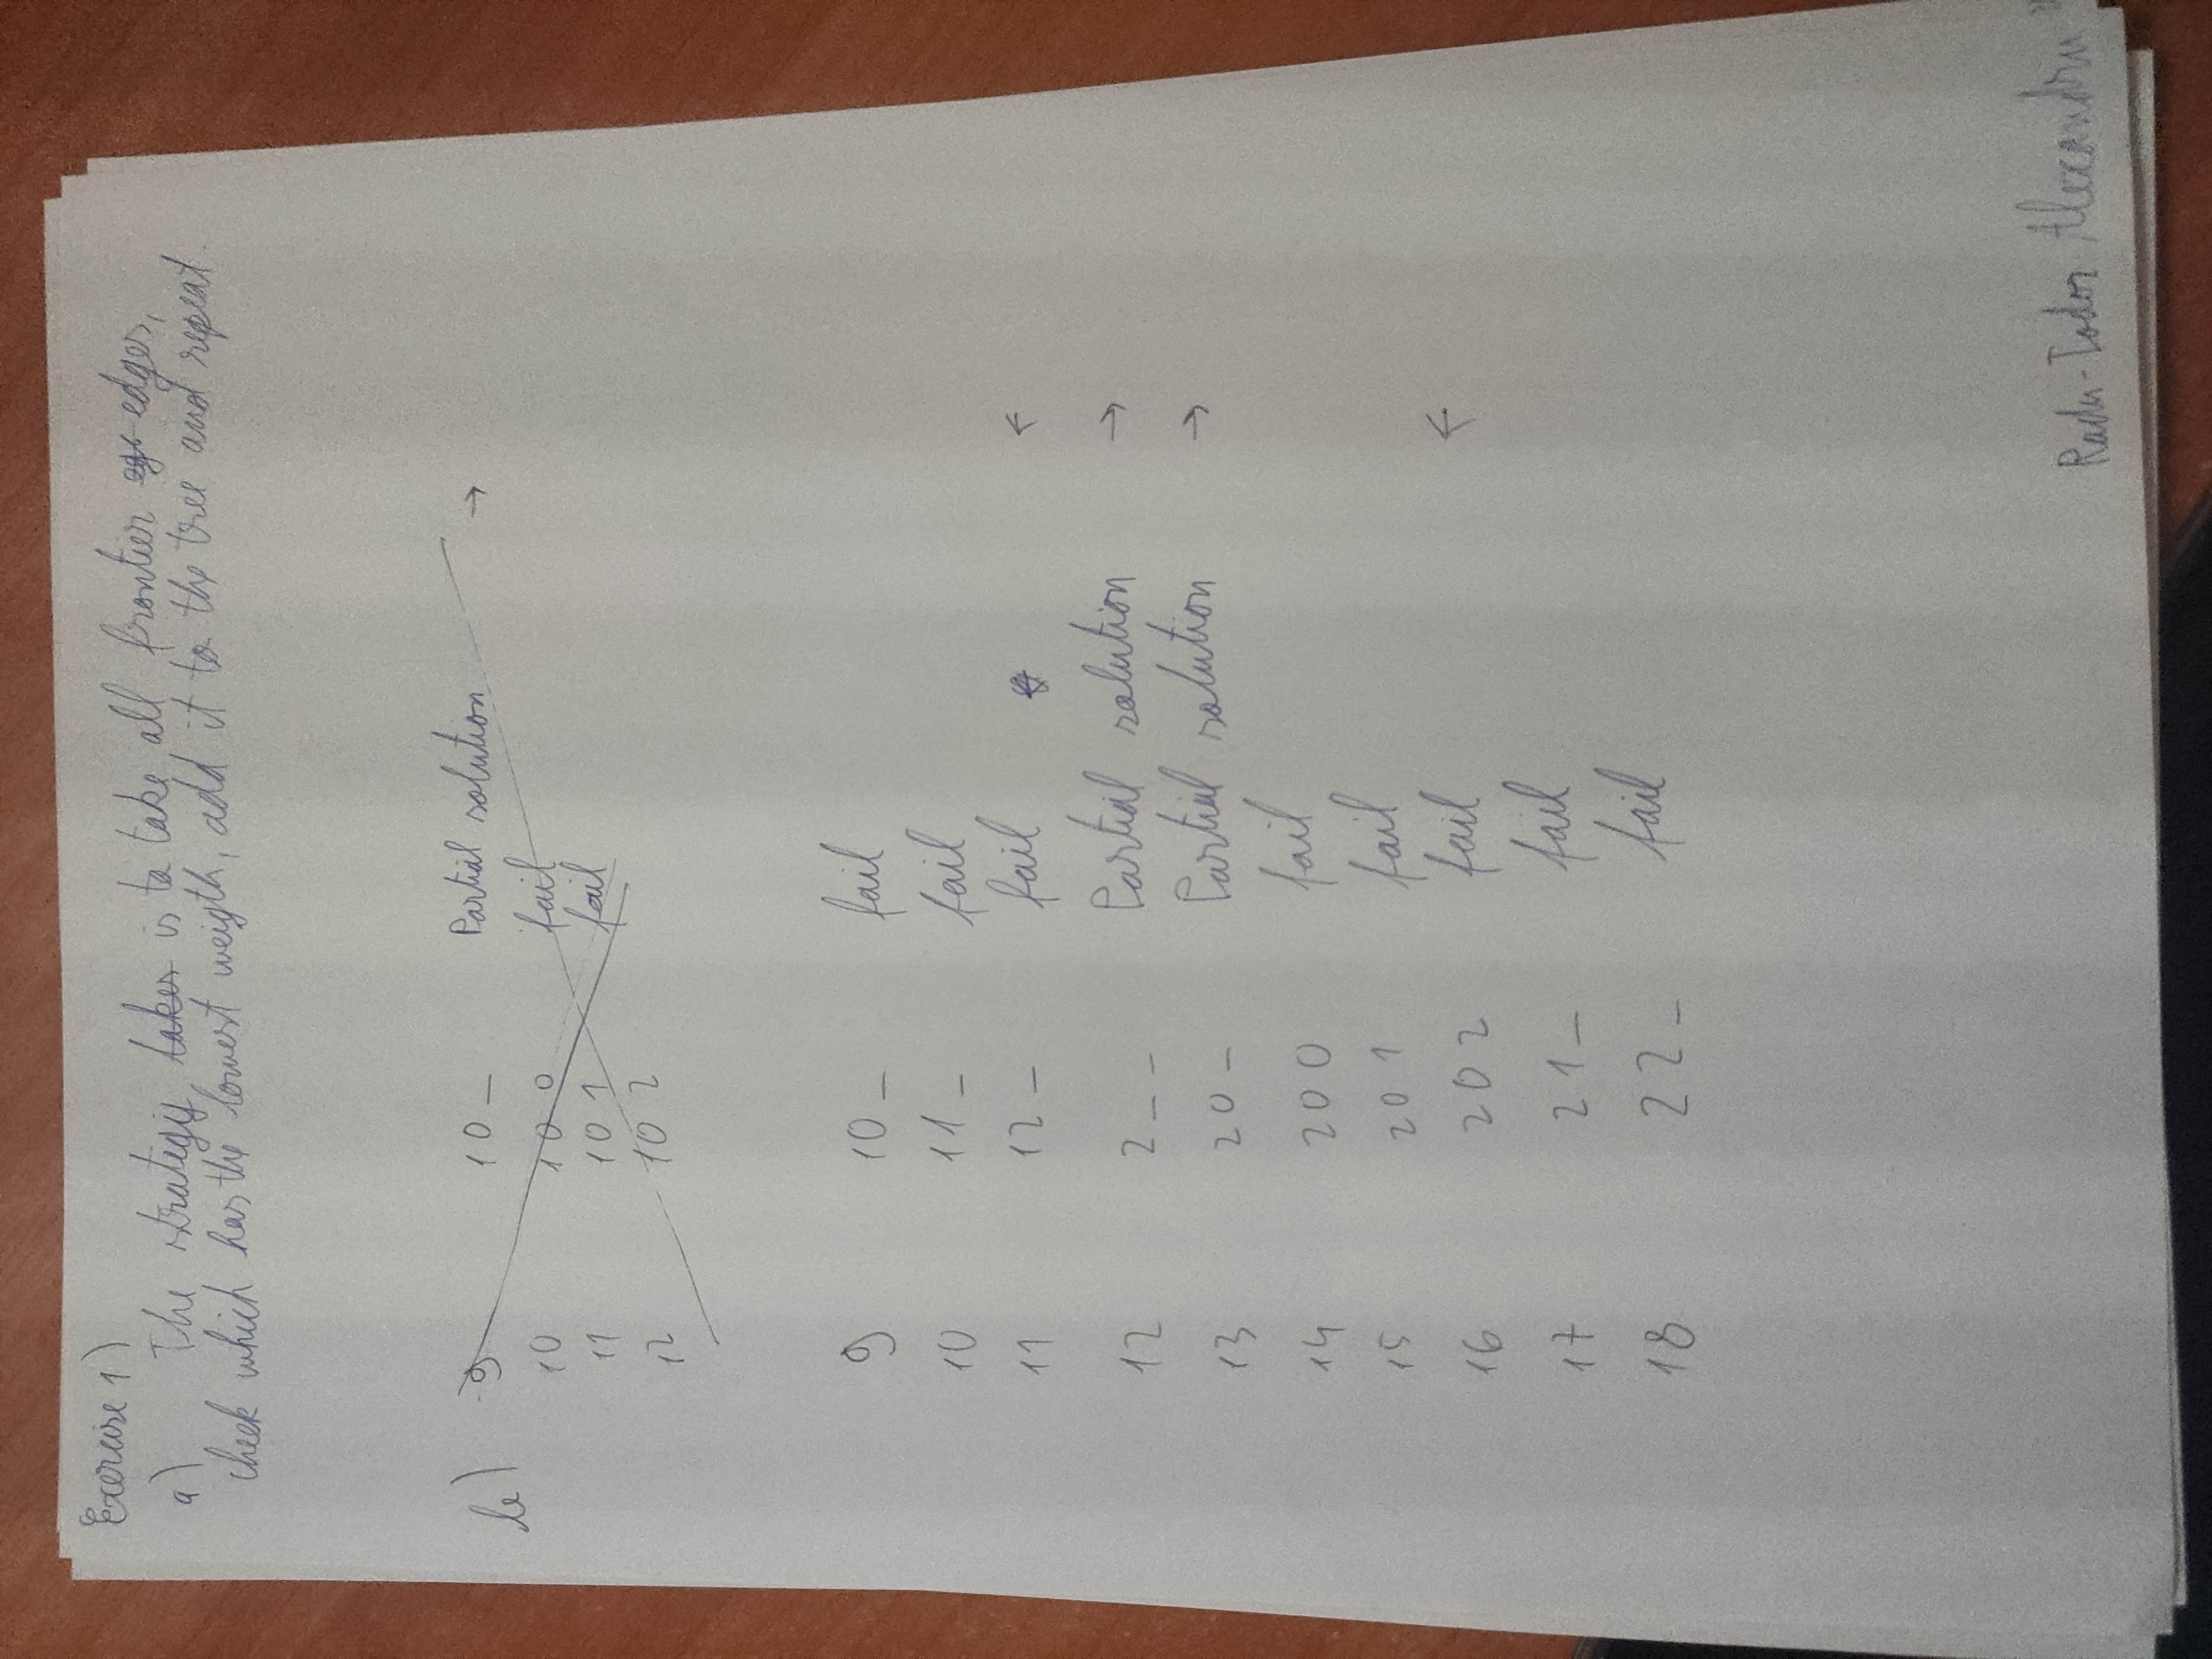 Exercise 1)
a) The strategy takes is to take all frontier edges,
check which has the lowest weigth, add it to the tree and repeat.
b) 9 10_ Partial solution →
10 10 0 fail
11 10 1 fail
12 10 2
9 10_ fail
10 11_ fail
11 12_ fail ←
12 2_ _ Partial solution →
13 20_ Partial solution →
14 200 fail
15 201 fail
16 202 fail ←
17 21_ fail
18 22_ fail
Radu-Todor Alexandru